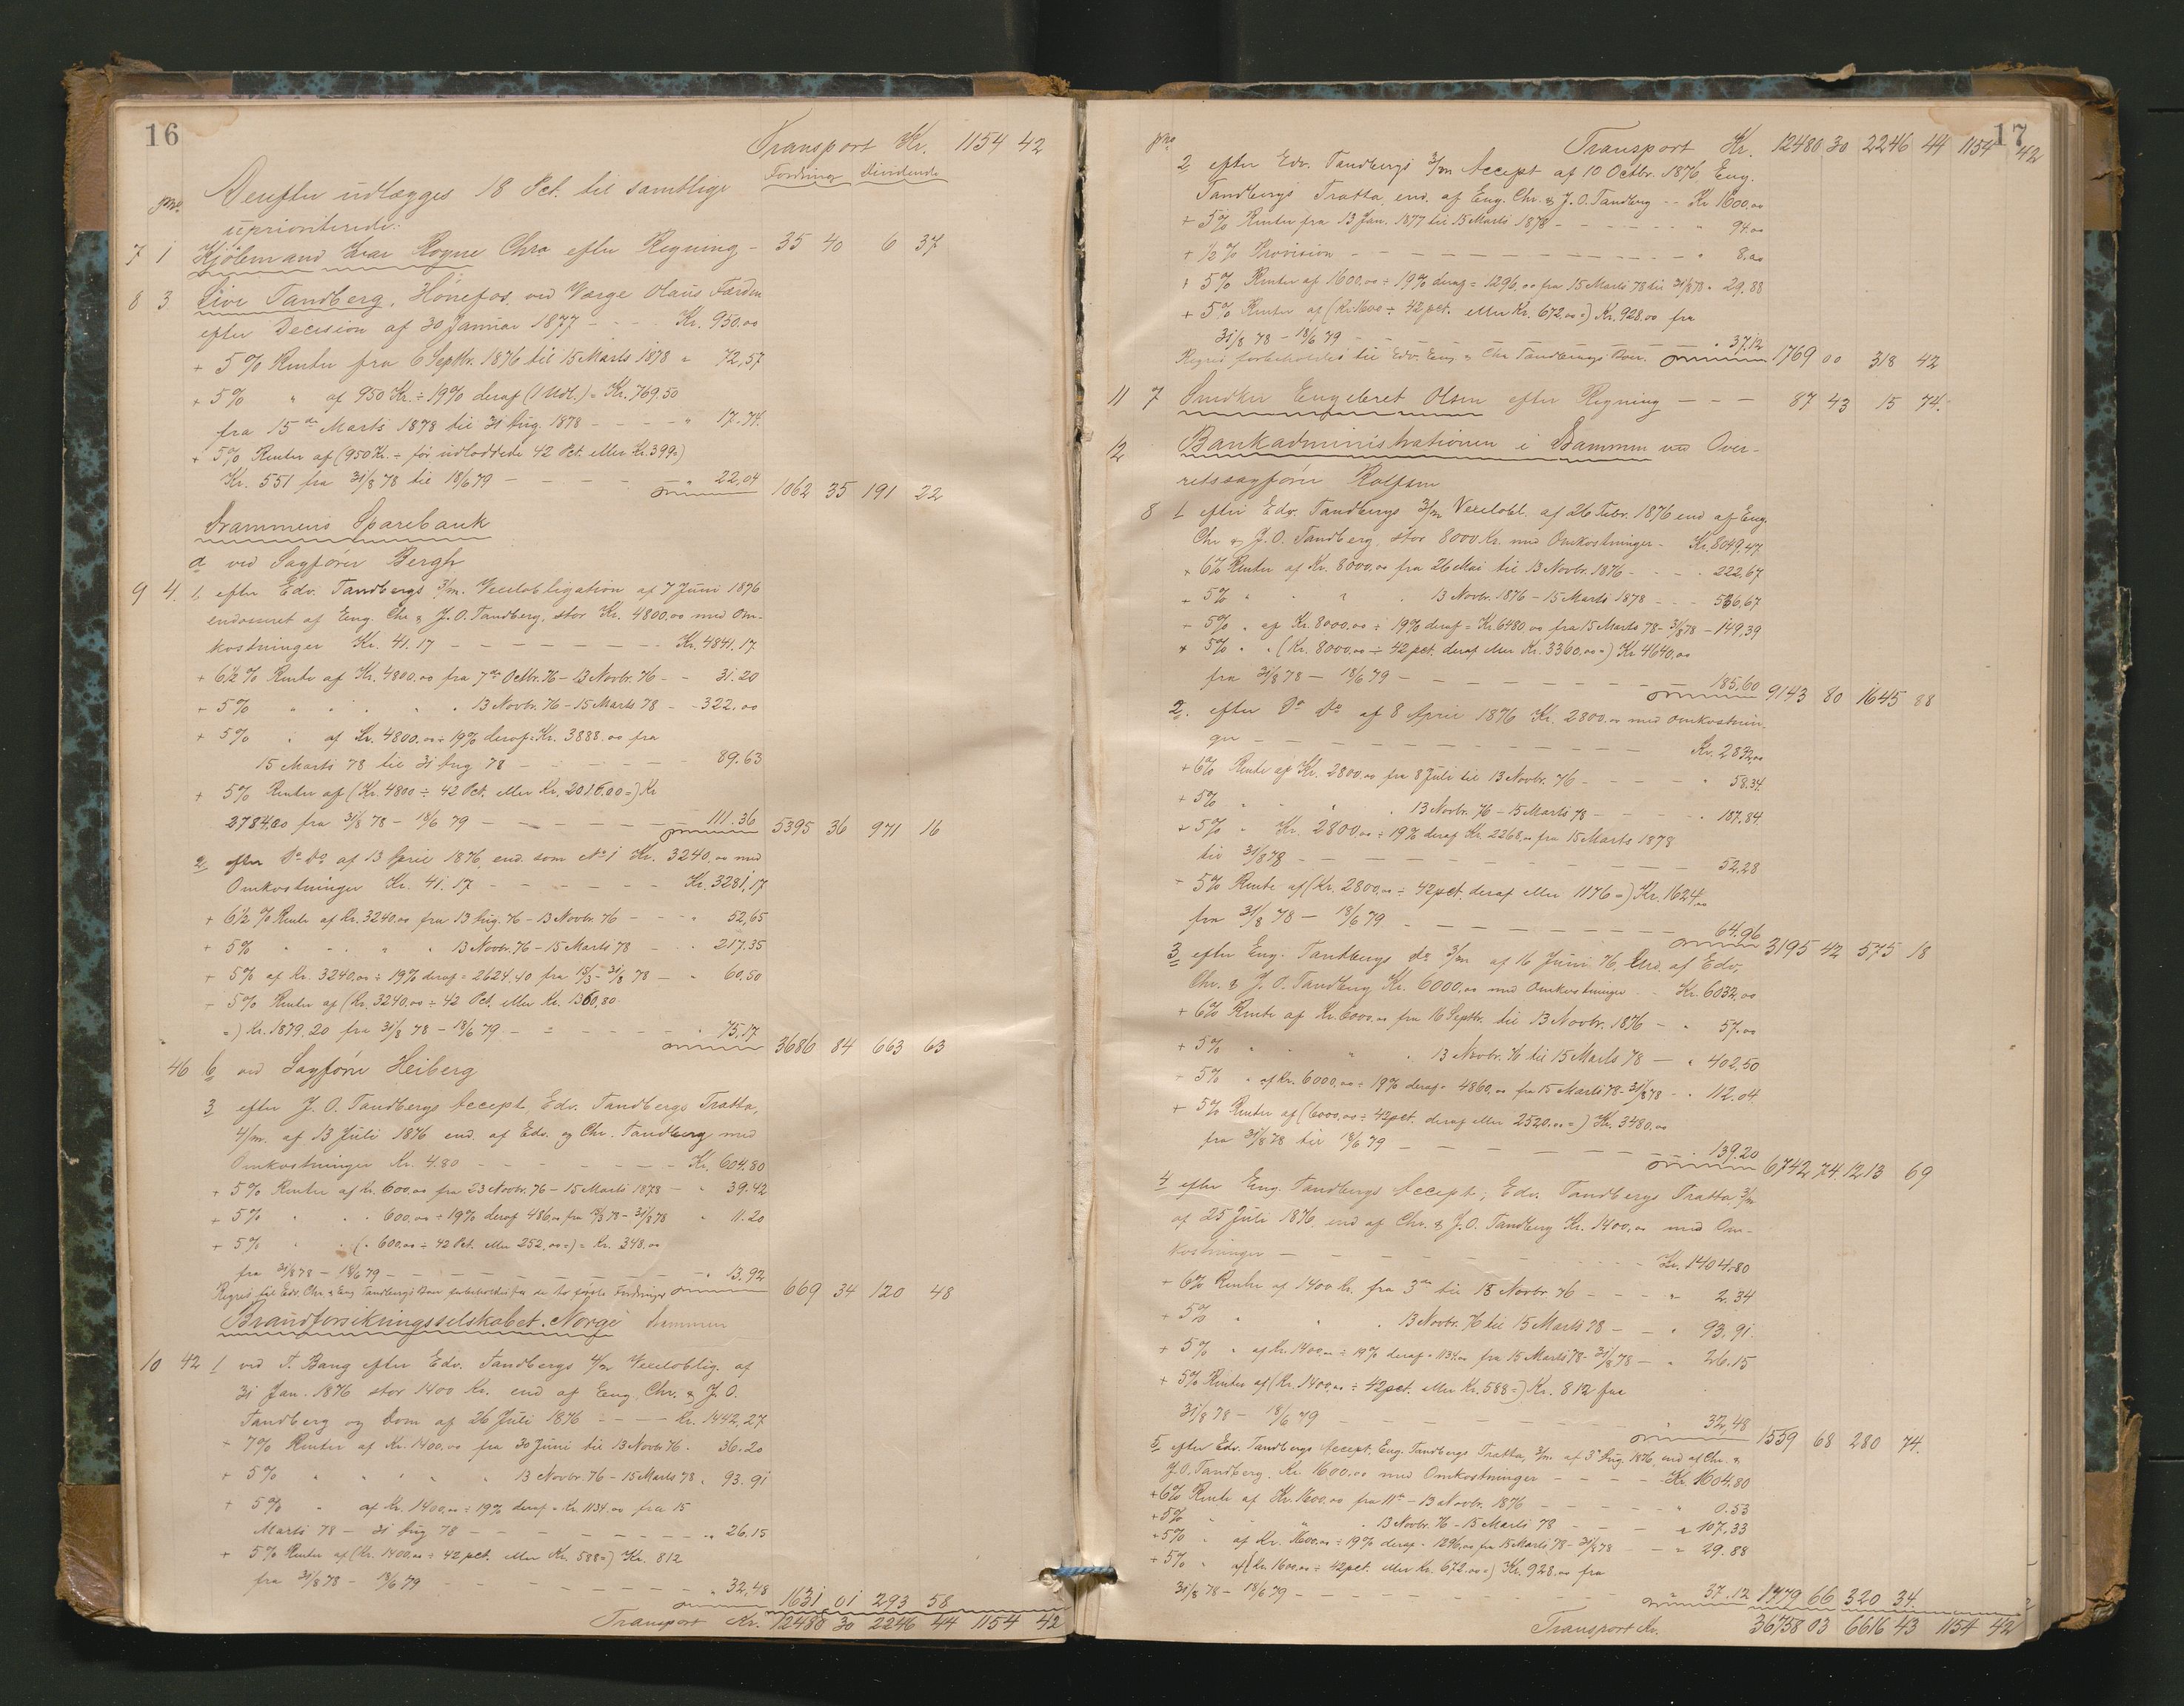 16
Transport Kr. 1154 42
Fordring Dividende
Derefter udlægges 18 Pct. til samtlige
uprioriterede:
7 1 Kjöbmand Ivar Rogne Chra efter Regning - 35 40 6 37
8 3 Live Tandberg, Hönefos, ved Værge Olaus Færden
efter Decision af 30 Januar 1877 - - - Kr. 950.00
+ 5% Renter fra 6 Septbr. 1876 til 15 Marts 1878 " 72,57
+ 5% " af 950 Kr. ÷ 19% deraf (1 Udl.) = Kr. 769.50
fra 15de Marts 1878 til 31 Aug. 1878 - - - - " 17.74.
+ 5% Renter af (950 Kr. ÷ før udloddede 42 Pct. eller Kr. 399=)
Kr. 551 fra 31/8 78 til 18/6 79 - - - - - " 22,04 1062 35 191 22
Drammens Sparebank
a ved Sagfører Bergh
9 4. 1. efter Edv. Tandbergs 3/m. Vexelobligation af 7 Juni 1876
endosseret af Eng. Chr. & J. O. Tandberg, stor Kr. 4800.00 med Om-
kostninger Kr. 41.17 - - - - - - - - Kr. 4841.17
+ 6½% Rente af Kr. 4800.00 fra 7de Octbr. 76 - 13 Novbr. 76 - - 31.20
+ 5% " " " " " 13 Novbr. 76 - 15 Marts 78 - - 322.00
+ 5% " af Kr. 4800.00 ÷ 19% deraf = Kr. 3888.00 fra
15 Marts 78 til 31 Aug 78 - - - - - - 89.63
+ 5% Renter af (Kr. 4800 ÷ 42 Pct. eller Kr. 2016.00=) Kr
2784.00 fra 31/8 78 - 18/6 79 - - - - - - 111.36 5395 36 971 16
2 efter Do Do af 13 April 1876, end. som No 1 Kr. 3240.00 med
Omkostninger Kr. 41.17 - - - - - - Kr. 3281,17
+ 6½% Rente af Kr. 3240.00 fra 13 Aug. 76 - 13 Novbr. 76 - - - 52,65
+ 5% " " " " 13 Novbr. 76 - 15 Marts 78 - - - 217.35
+ 5% af Kr. 3240,00 ÷ 19% deraf = 2624.40 fra 15/3 - 31/8 78 - " 60,50
- 5% Renter af (Kr. 3240.00 ÷ 42 Pct. eller Kr. 1360,80
=) Kr. 1879.20 fra 31/8 78 - 18/6 79 - - - - - - " 75,17 3686 84 663 63
46 b ved Sagfører Heiberg
3 efter J. O. Tandbergs Accept, Edv. Tandbergs Tratta,
4/m. af 13 Juli 1876 end. af Edv. og Chr. Tandberg med
Omkostninger Kr. 4.80 - - - - - - - Kr. 604.80
+ 5% Renter af Kr. 600.00 fra 23 Novbr. 76 - 15 Marts 1878 - " 39.42
+ 5% " " 600,00 ÷ 19% deraf 486.00 fra 15/3 78 - 31/8 78 " 11.20
+ 5% " " (" 600.00 ÷ 42 Pct. eller 252.00=) = Kr. 348.00
fra 31/8 78 - 18/6 79 - - - - - - - - - " 13.92 669 34 120 48
Regres til Edv. Chr. & Eng Tandbergs Boer forbeholdes for de to første Fordringer
Brandforsikringsselskabet Norge Drammen
10 42 1 ved T. Bang efter Edv. Tandbergs 4/m Vexeloblig. af
31 Jan. 1876 stor 1400 Kr. end af Eng. Chr. & J. O.
Tandberg og Dom af 26 Juli 1876 - - - - Kr. 1442,27
+ 7% Renter af Kr. 1400.00 fra 30 Juni til 13 Novbr. 76 . 36.20
+ 5% " " " " " 13 Novbr. 76 - 15 Marts 78 . 93.91
+ 5% " af Kr. 1400.00 ÷ 19% deraf = Kr. 1134.00 fra 15
Marts 78 - 31 Aug 78 - - - - - - - " 26,15
+ 5% Renter af (Kr. 1400.00 ÷ 42 pct. eller Kr. 588=) Kr. 812
fra 31/8 78 - 18/6 79 - - - - - - - " 32,48 1631 01 293 58
Transport Kr. 12480 30 2246 44 1154 42
17
Transport Kr. 12480 30 2246 44 1154 42
2 efter Edv. Tandbergs 3/m Accept af 10 Octbr. 1876, Eng.
Tandbergs Tratta, end. af Eng. Chr. & J. O. Tandberg - - Kr 1600.00
+ 5% Renter fra 13 Jan. 1877 til 15 Marts 1878 - - - - - - " 94.00
+ ½% Provision - - - - - - - - - " 8.00
+ 5% Renter af 1600.00 ÷ 19% deraf = 1296.00 fra 15 Marts 78 til 31/8 78 " 29.88
+ 5% Renter af (Kr. 1600 ÷ 42 pct. eller Kr. 672.00=) Kr. 928.00 fra
31/8 78 - 18/6 79 - - - - - - - - - " 37.12
Regres forbeholdes til Edv. Eng. & Chr Tandbergs Boer. 1769 00 318 42
11 7 Smedker Engebret Olsen efter Regning - - - 87 43 15 74.
12 Bankadministrationen i Drammen ved Over-
retssagfører Rolfsen
8 1 efter Edv. Tandbergs 3/m Vexelobl. af 26 Febr. 1876 end af Eng.
Chr & J. O. Tandberg, stor 8000 Kr. med Omkostninger - Kr. 8049,47
+ 6% Renter af Kr. 8000.00 fra 26 Mai til 13 Novbr. 1876 - - - . 222,67
+ 5% " " " " 13 Novbr. 1876 - 15 Marts 1878 - - - 536,67
- 5% " af Kr. 8000.00 ÷ 19% deraf = Kr. 6480.00 fra 15 Marts 78 - 31/8 78 - 149,39
+ 5% " " (Kr. 8000.00 ÷ 42 pct. deraf eller Kr. 3360.00=) Kr 4640.00
fra 31/8 78 - 18/6 79 - - - - - - - - 185,60 9143 80 1645 88
2. efter Do Do af 8 April 1876 Kr. 2800.00 med Omkostnin-
ger - - - - - - - - - - - - - Kr. 2832.00
+ 6% Rente af Kr. 2800.00 fra 8 Juli til 13 Novbr. 76 - - - - " 58.34.
+ 5% " " " " 13 Novbr. 76 - 15 Marts 78 - - - " 187.84.
+ 5% " Kr. 2800.00 ÷ 19% deraf Kr. 2268.00 fra 15 Marts 1878
til 31/8 78 - - - - - - - - - - - 52,28
- 5% Rente af (Kr. 2800.00 ÷ 42 pct. deraf eller 1176=) Kr. 1624.00
fra 31/8 78 - 18/6 79 - - - - - - - - - 64.96 3195 42 575 18
3 efter Eng. Tandbergs do 3/m af 16 Juni 76, End. af Edv.
Chr. & J. O. Tandberg Kr. 6000.00 med Omkostninger - - Kr. 6032.00
+ 6% Rente af Kr. 6000.00 fra 16 Septbr. til 13 Novbr. 1876 - " 57.00
+ 5% " " " " 13 Novbr. 76 til 15 Marts 78 - " 402,50
- 5% " af Kr. 6000.00 ÷ 19% deraf = 4860.00 fra 15 Marts 78 - 31/8 78 - " 112.04
+ 5% Renter af (6000.00 ÷ 42 pct. deraf eller 2520.00=) Kr. 3480.00
fra 31/8 78 til 18/6 79 - - - - - - - - " 139.20 6742 74. 1213 69
4 efter Eng. Tandbergs Accept, Edv. Tandbergs Tratta 3/m
af 25 Juli 1876, end af Chr. & J. O. Tandberg Kr. 1400.00 med Om-
kostninger - - - - - - - - - - - Kr. 1404.80
+ 6% Renter af 1400 Kr. fra 3de til 13 Novbr 76 - - - " 2.34
+ 5% " " " 13 Novbr. 76 til 15 Marts 78 - - " 93.91.
+ 5% " af Kr. 1400.00 ÷ 19% deraf = 1134.00 fra 15 Marts 78 - 31/8 78 - " 26.15
+ 5% Renter af (Kr. 1400.00 ÷ 42 pct. eller Kr. 588=) Kr. 812 fra
31/8 78 - 18/6 79 - - - - - - - - " 32,48 1559 68 280 74.
5 efter Edv. Tandbergs Accept, Eng. Tandbergs Tratta, 3/m af 3 Aug. 1876, end af Chr. &
J. O. Tandberg. Kr. 1600.00 med Omkostninger - - - - Kr. 1604.80
+ 6% Rente af Kr. 1600.00 fra 11te - 13 Novbr. 1876 - - - - " 0.53
+ 5% " " " " 13 Novbr. 76 - 15 Marts 78 - - - " 107,33
+ 5% " af Kr. 1600.00 ÷ 19% deraf = 1296.00 fra 15 Marts 78 - 31/8 78 - - " 29.88
+ 5% " af (Kr. 1600.00 ÷ 42 pct. eller Kr. 672.00=) Kr. 928.00 fra
31/8 78 - 18/6 79 - - - - - - - " 37.12 1779 66 320 34.
Transport Kr. 36758 03 6616 43 1154 42